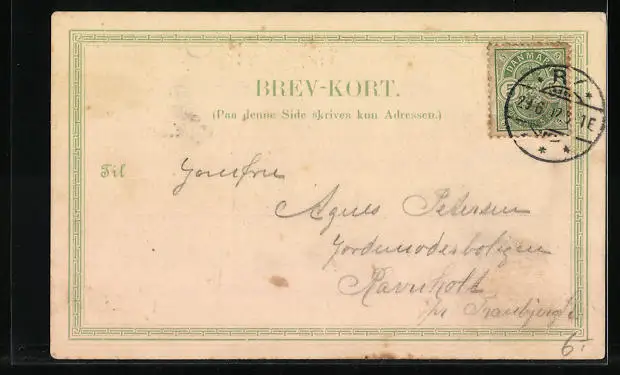 DANMARK
BREV-KORT.
(Paa denne Side skrives kun Adressen.)
Til Jomfru
Agnes Petersen
Jordemoderboligen
Ravnholt
pr Tranbjerg
6-